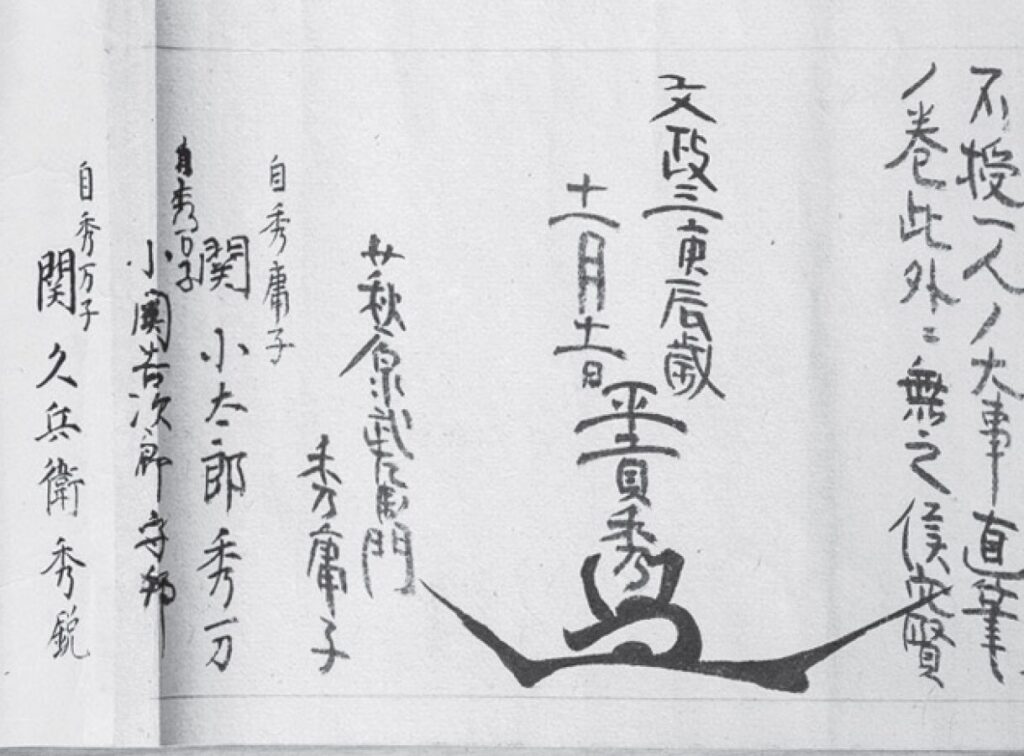 不授一人ノ大事直筆
ノ巻此外ニ無之候穴賢
文政三庚辰歳
十一月十一日
平貞秀
萩原武左衛門
秀庸子
自秀庸子
関小太郎秀一刀
自秀万子
小関吉次郎守邦
自秀万子
関久兵衛秀鋭